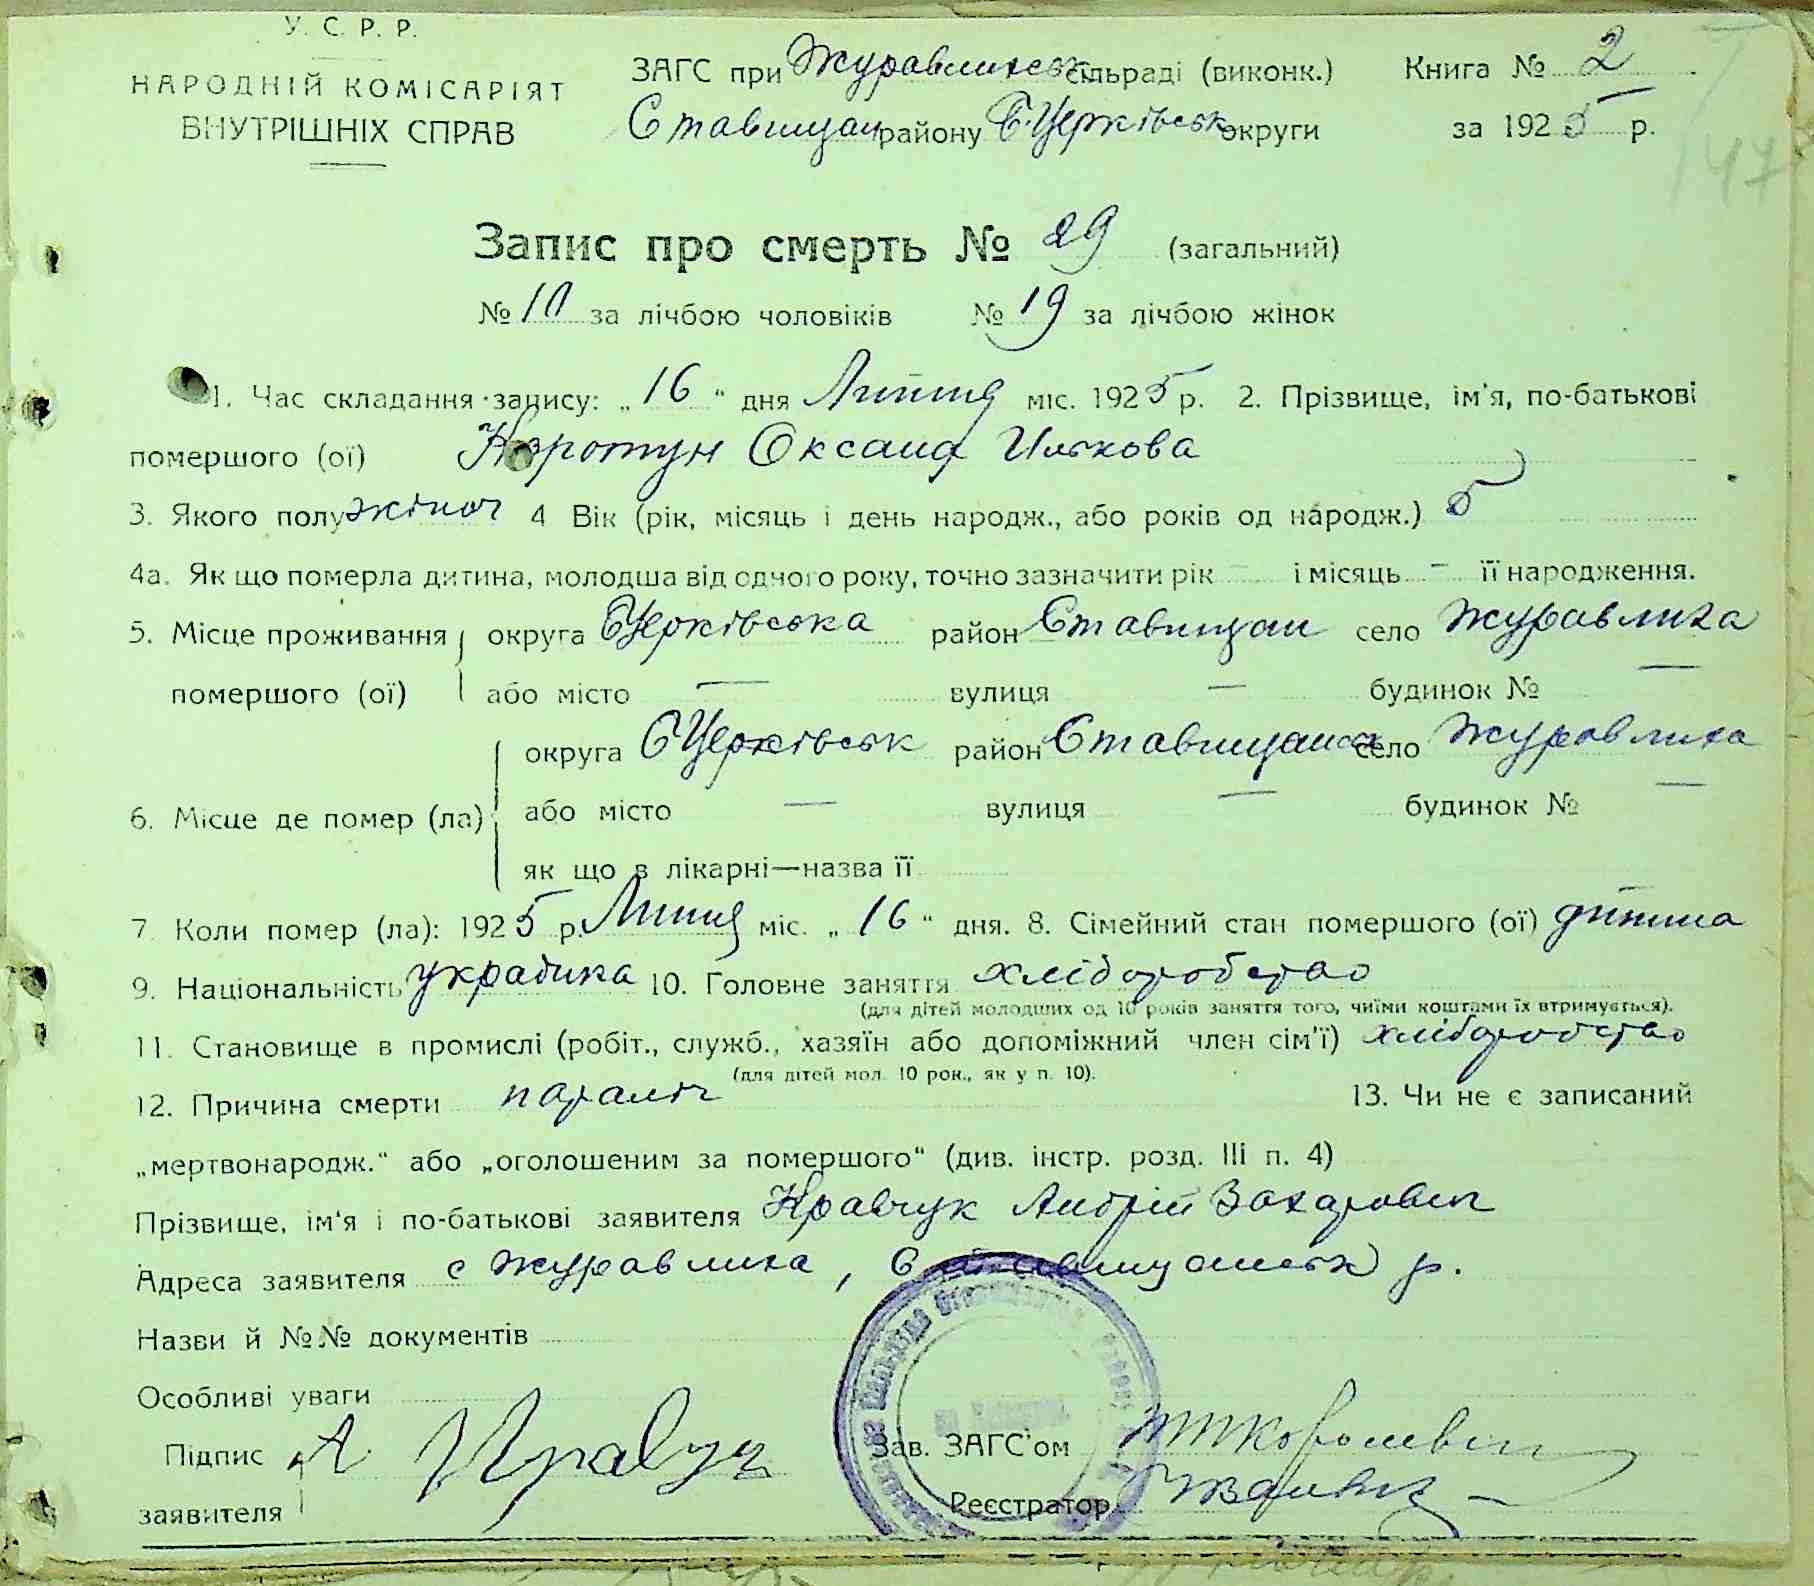 У. С. Р. Р.
НАРОДНІЙ КОМІСАРІЯТ
ВНУТРІШНІХ СПРАВ
ЗАГС при Журавлиськ сільраді (виконк.) Книга № 2
Ставищан району Б.Церківськ округи за 1925 р.
147
Запис про смерть № 29 (загальний)
№ 10 за лічбою чоловіків № 19 за лічбою жінок
1. Час складання запису: „16" дня Липня міс. 1925 р. 2. Прізвище, ім'я, по-батькові
помершого (ої) Коротун Оксана Илькова
3. Якого полу жіноч 4 Вік (рік, місяць і день народж., або років од народж.) 5
4а. Як що померла дитина, молодша від одного року, точно зазначити рік — і місяць — її народження.
5. Місце проживання округа БЦерківська район Ставищан село Журавлиха
помершого (ої) або місто — вулиця — будинок № —
округа БЦерківськ район Ставищанськ село Журавлиха
6. Місце де помер (ла) або місто — вулиця — будинок № —
як що в лікарні—назва її
7. Коли помер (ла): 1925 р. Липня міс. „16" дня. 8. Сімейний стан помершого (ої) дитина
9. Національність українка 10. Головне заняття хліборобство
(для дітей молодших од 10 років заняття того, чиїми коштами їх втримується).
11. Становище в промислі (робіт., служб., хазяїн або допоміжний член сім'ї) хліборобство
(для дітей мол. 10 рок., як у п. 10).
12. Причина смерти параліч 13. Чи не є записаний
„мертвонародж." або „оголошеним за помершого" (див. інстр. розд. III п. 4)
Прізвище, ім'я і по-батькові заявителя Кравчук Андрій Захарович
Адреса заявителя с Журавлиха, Ставищанськ р.
Назви й №№ документів
Особливі уваги
Підпис А Кравчук
заявителя
Зав. ЗАГС'ом
Реєстратор